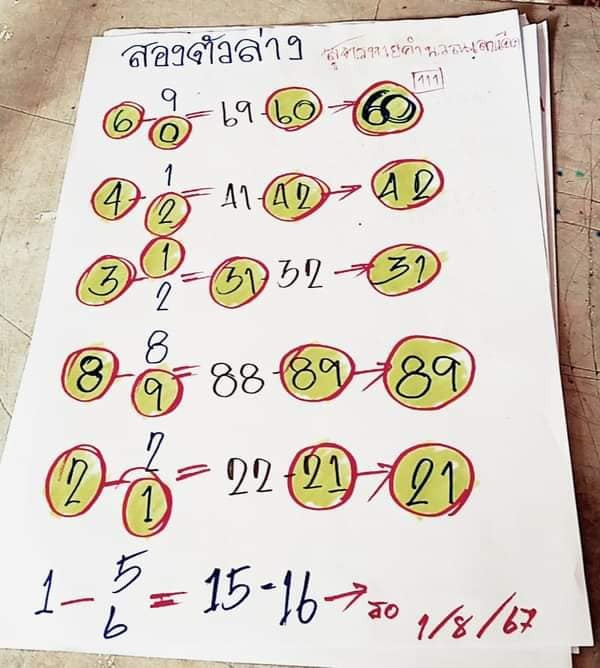 สองตัวล่าง สูตรหวยคำนวณเลขเด็ด
111
9
6 - 0 = 69 - 60 → 60
1
4 - 2 = 41 - 42 → 42
1
3 - 2 = 31 - 32 → 31
8
8 - 9 = 88 - 89 → 89
2
2 - 1 = 22 - 21 → 21
5
1 - 6 = 15 - 16 → รอ 1/8/67